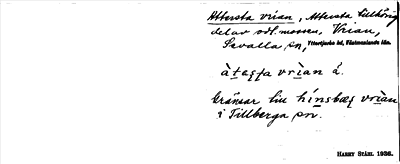 Attersta vrian, Attersta tillhörig
del av odl. mossen, Vrian,
Sevalla sn, Yttertjurbo hd, Västmanlands län.
àtaṣṣa vrìan á.
Gränsar till hínsbæg vrìan
i Tillberga sn.
HARRY STÅHL 1936.